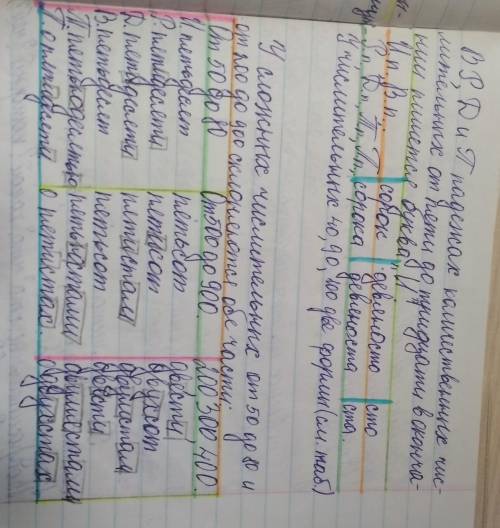 В Р, Д и П падежах количественных чис-
лительных от пяти до тридцати в оконча-
нии пишется буква "и"
И.п. В.п. сорок девяносто сто
Р.п, Д.п, Т.п, П.п, сорока девяноста ста.
У числительных 40, 90, 100 две формы (см. таб)
У сложных числительных от 50 до 80 и
от 200 до 900 склоняются обе части:
От 50 до 80 От 500 до 900. 200, 300, 400.
И. петьдесят петьсот двести,
Р. петидесяти петисот двухсот
Д. петидесяти петистам двумстам
В. петьдесят петьсот двести
Т. петьюдесятью петьюстами двумястами
П. о петидесяти о петистах. двухстах